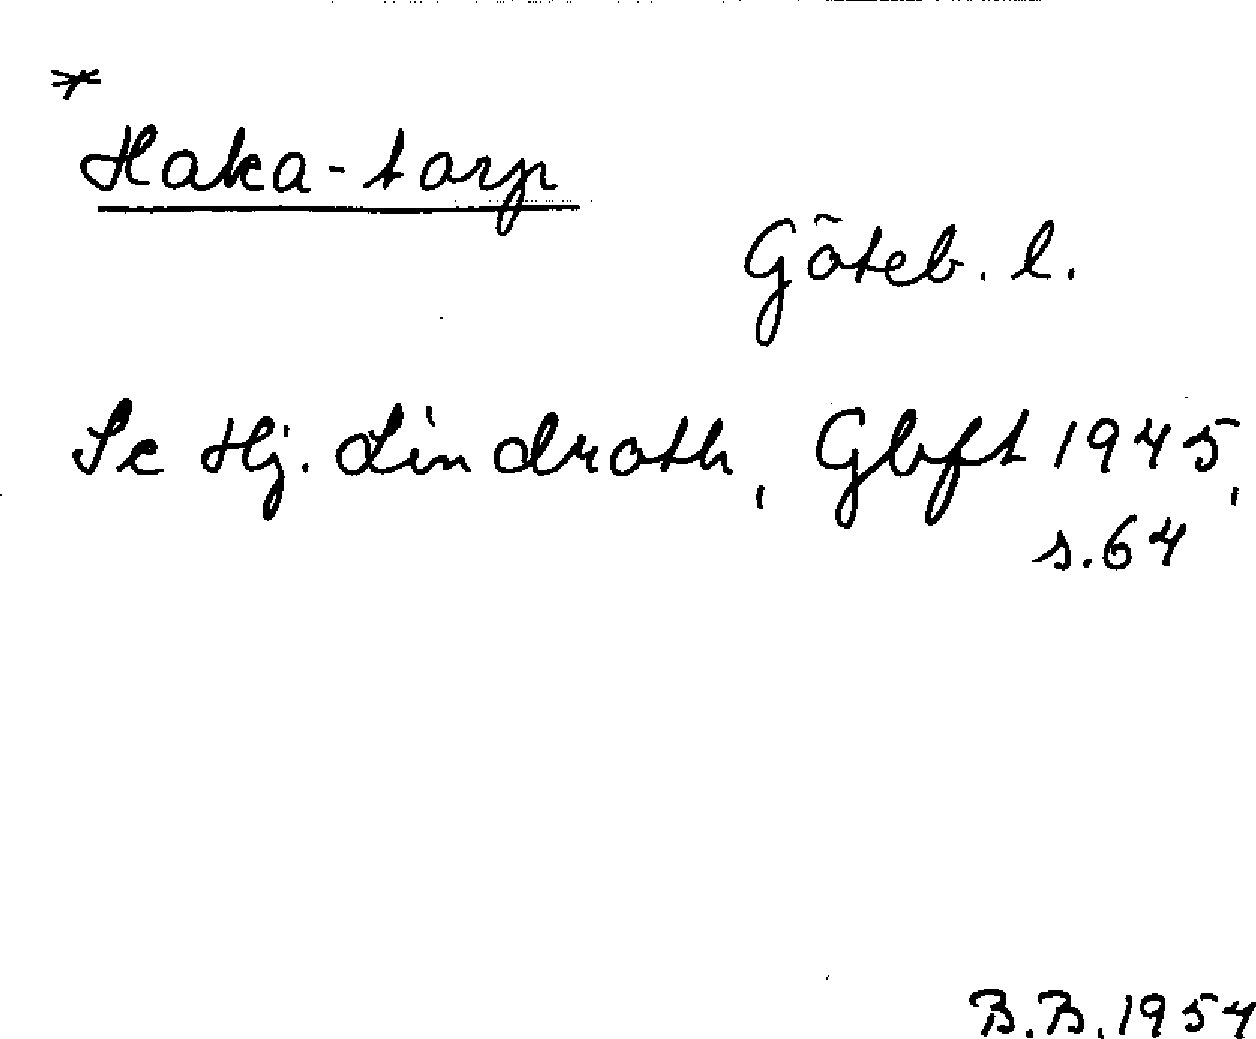 *
Haka-torp
Göteb. l.
Se Hj. Lindroth, Gbft 1945,
s. 64
B.B. 1954